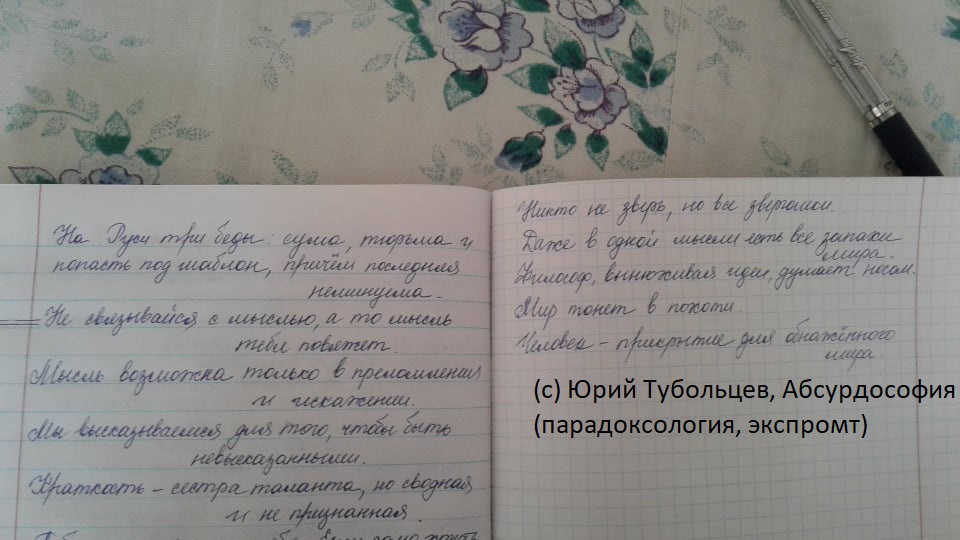 На Руси три беды: сума, тюрьма и
попасть под шаблон, причём последняя
неминуема.
Не связывайся с мыслью, а то мысль
тебя повяжет.
Мысль возможна только в преломлении
и искажении.
Мы высказываемся для того, чтобы быть
невысказанными.
Краткость – сестра таланта, но сводная
и не признанная.
Никто не зверь, но все зверюшки.
Даже в одной мысли есть все запахи
мира.
Философ, вынюживая идеи, думает носом.
Мир тонет в похоти.
Человек – прикрытие для обнажённого
мира.
(с) Юрий Тубольцев, Абсурдософия
(парадоксология, экспромт)